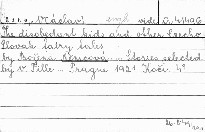 Václav vide
The disobedient kids and other Czecho
Slovak fairy tales
by Božena Němcová ... Stories selected
by V. Tille ... Prague 1921 Kočí. 4°